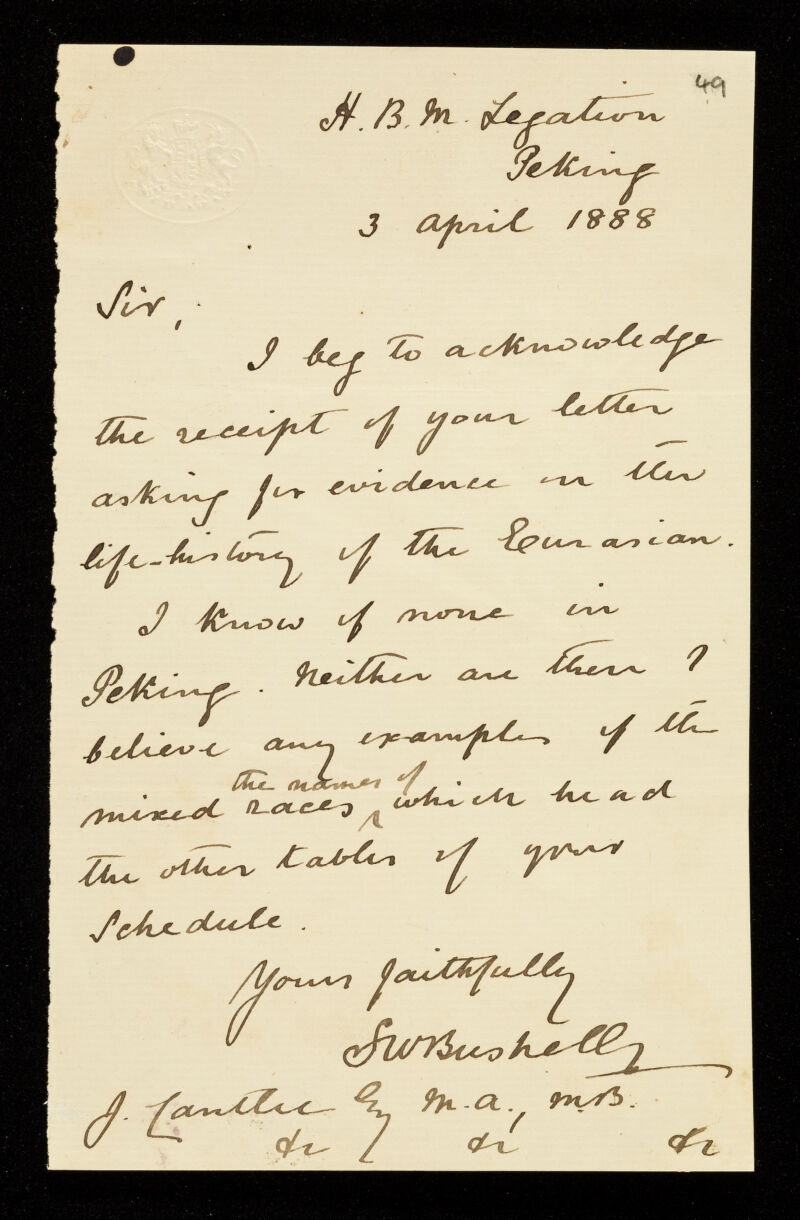 49
H. B. M. Legation
Peking
3 April 1888
Sir,
I beg to acknowledge
the receipt of your letter
asking for evidence on the
life-history of the Eurasian.
I know of none in
Peking. Neither are there I
believe any examples of the
the names of
mixed races ‸ which head
the other tables of your
Schedule.
Yours faithfully
S W Bushell
J. Cantlie Esq M.A., M.B.
&c &c &c